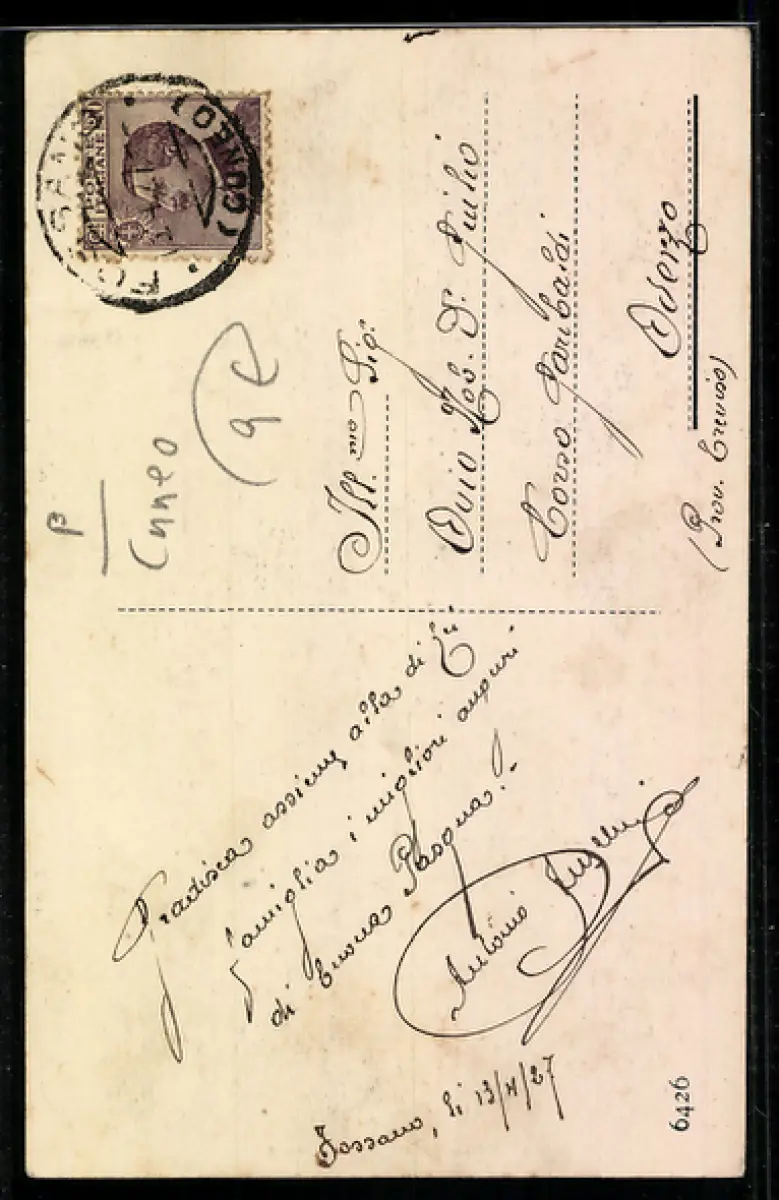 POSTE ITALIANE
FOSSANO
(CUNEO)
β
Cuneo
9 €
Ill.mo Sig.
Ovio Nob. Dr. Giulio
Corso Garibaldi
Oderzo
(Prov. Treviso)
Gradisca assieme alla di Lei
famiglia i migliori auguri
di buona Pasqua!
Antonio
Fossano, li 13/4/27
6426